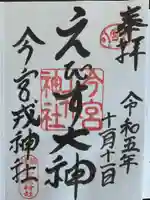 奉拝
令和五年
十月十一日
えびす大神
今宮
神社
今宮戎神社